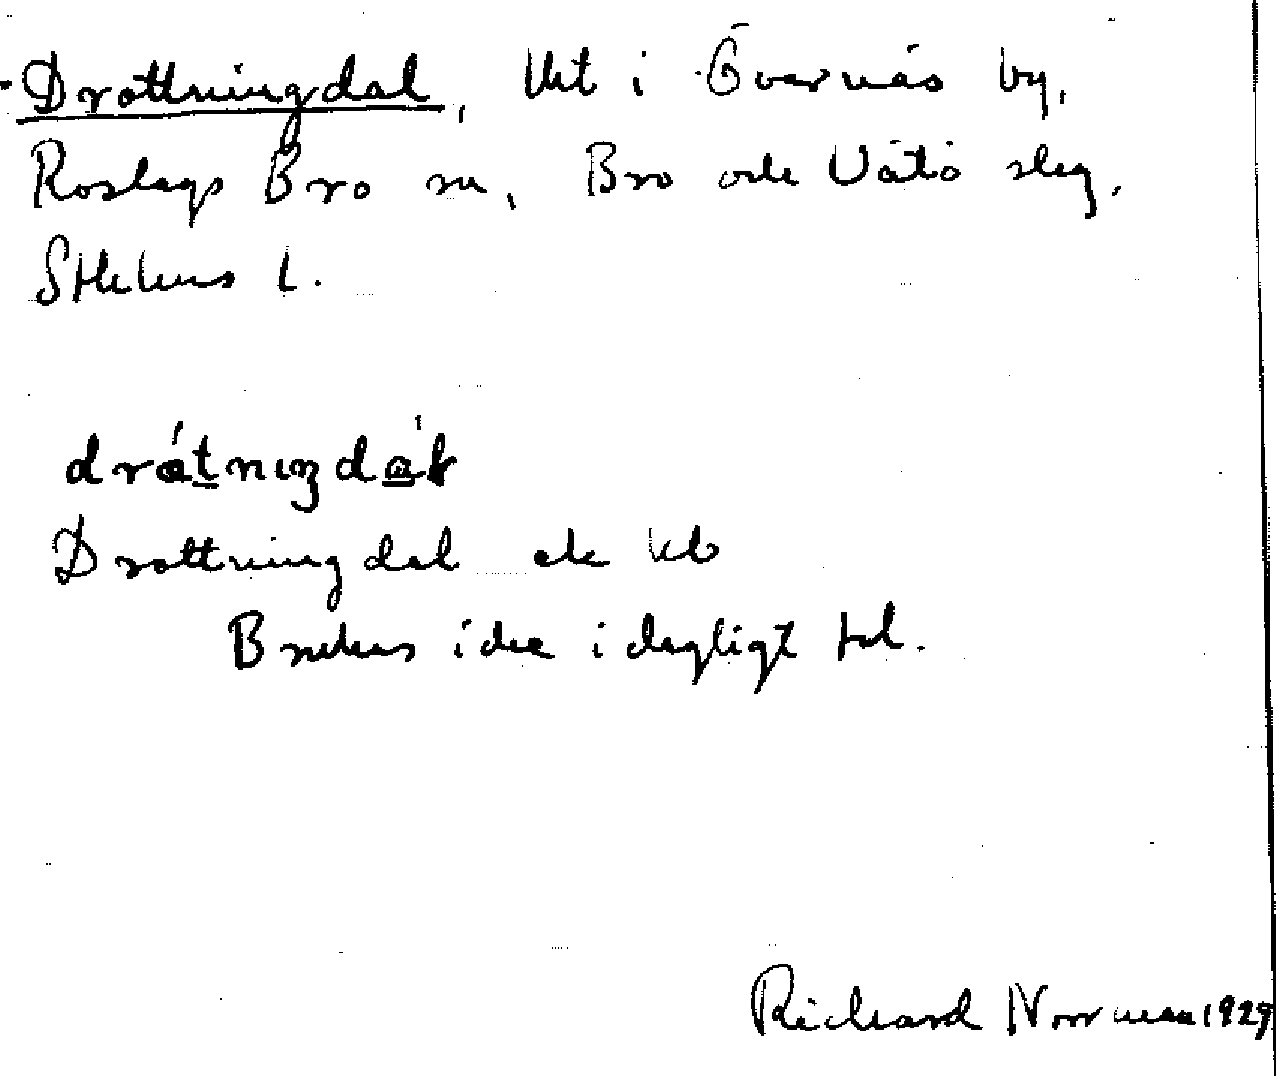 Drottningdal, lht i Övernäs by,
Roslags Bro sn, Bro och Vätö slag,
Sthlms l.
drǻtnıŋdɑ̀ɫ
Drottningdal ek kb
Brukas icke i dagligt tal.
Richard Norrman 1929